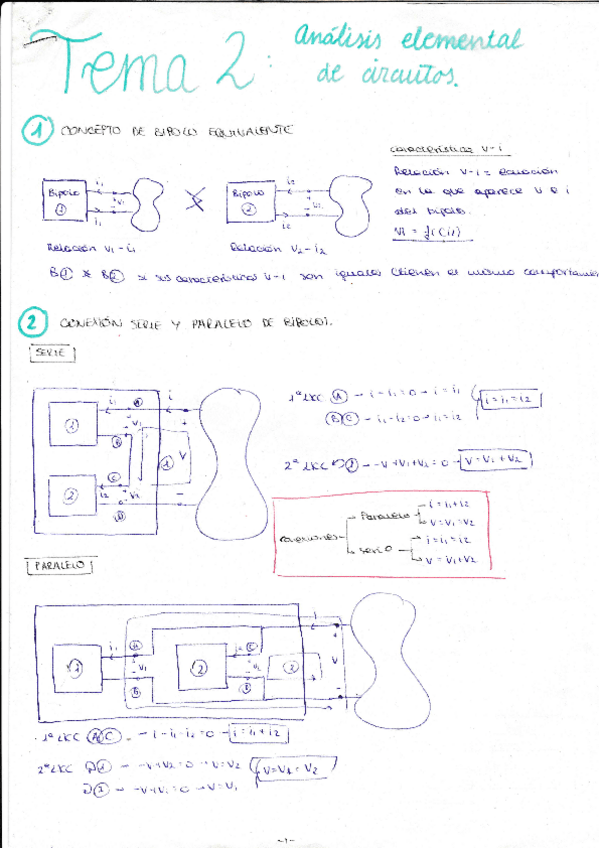 Tema 2: Análisis elemental
de circuitos.
1 CONCEPTO DE BIPOLO EQUIVALENTE
característica v-i
Relación v-i = ecuación
en la que aparece v e i
del bipolo.
V1 = f(i1)
Bipolo 1 i1 V1 i1
Bipolo 2 i2 V2 i2
Relación V1-i1
Relación V2-i2
B1 B2 si sus características v-i son iguales (tienen el mismo comportamien
2 CONEXIÓN SERIE Y PARALELO DE BIPOLOS.
SERIE
1 i1 A i + V1 B
2 C i2 V2 D 1 V -
1ª LKC A → i-i1=0 → i=i1
B C → i1-i2=0 → i1=i2
i=i1=i2
2ª LKC 1 → -V+V1+V2=0 → V=V1+V2
conexiones
Paralelo
i=i1+i2
V=V1=V2
serie
i=i1=i2
V=V1+V2
PARALELO
1 i1 A + V1 - B 2 i2 C + V2 - D 2 i + V -
1ª LKC A C → i-i1-i2=0 → i=i1+i2
2ª LKC 1 → -V+V2=0 → V=V2
2 → -V+V1=0 → V=V1
V=V1=V2
-1-